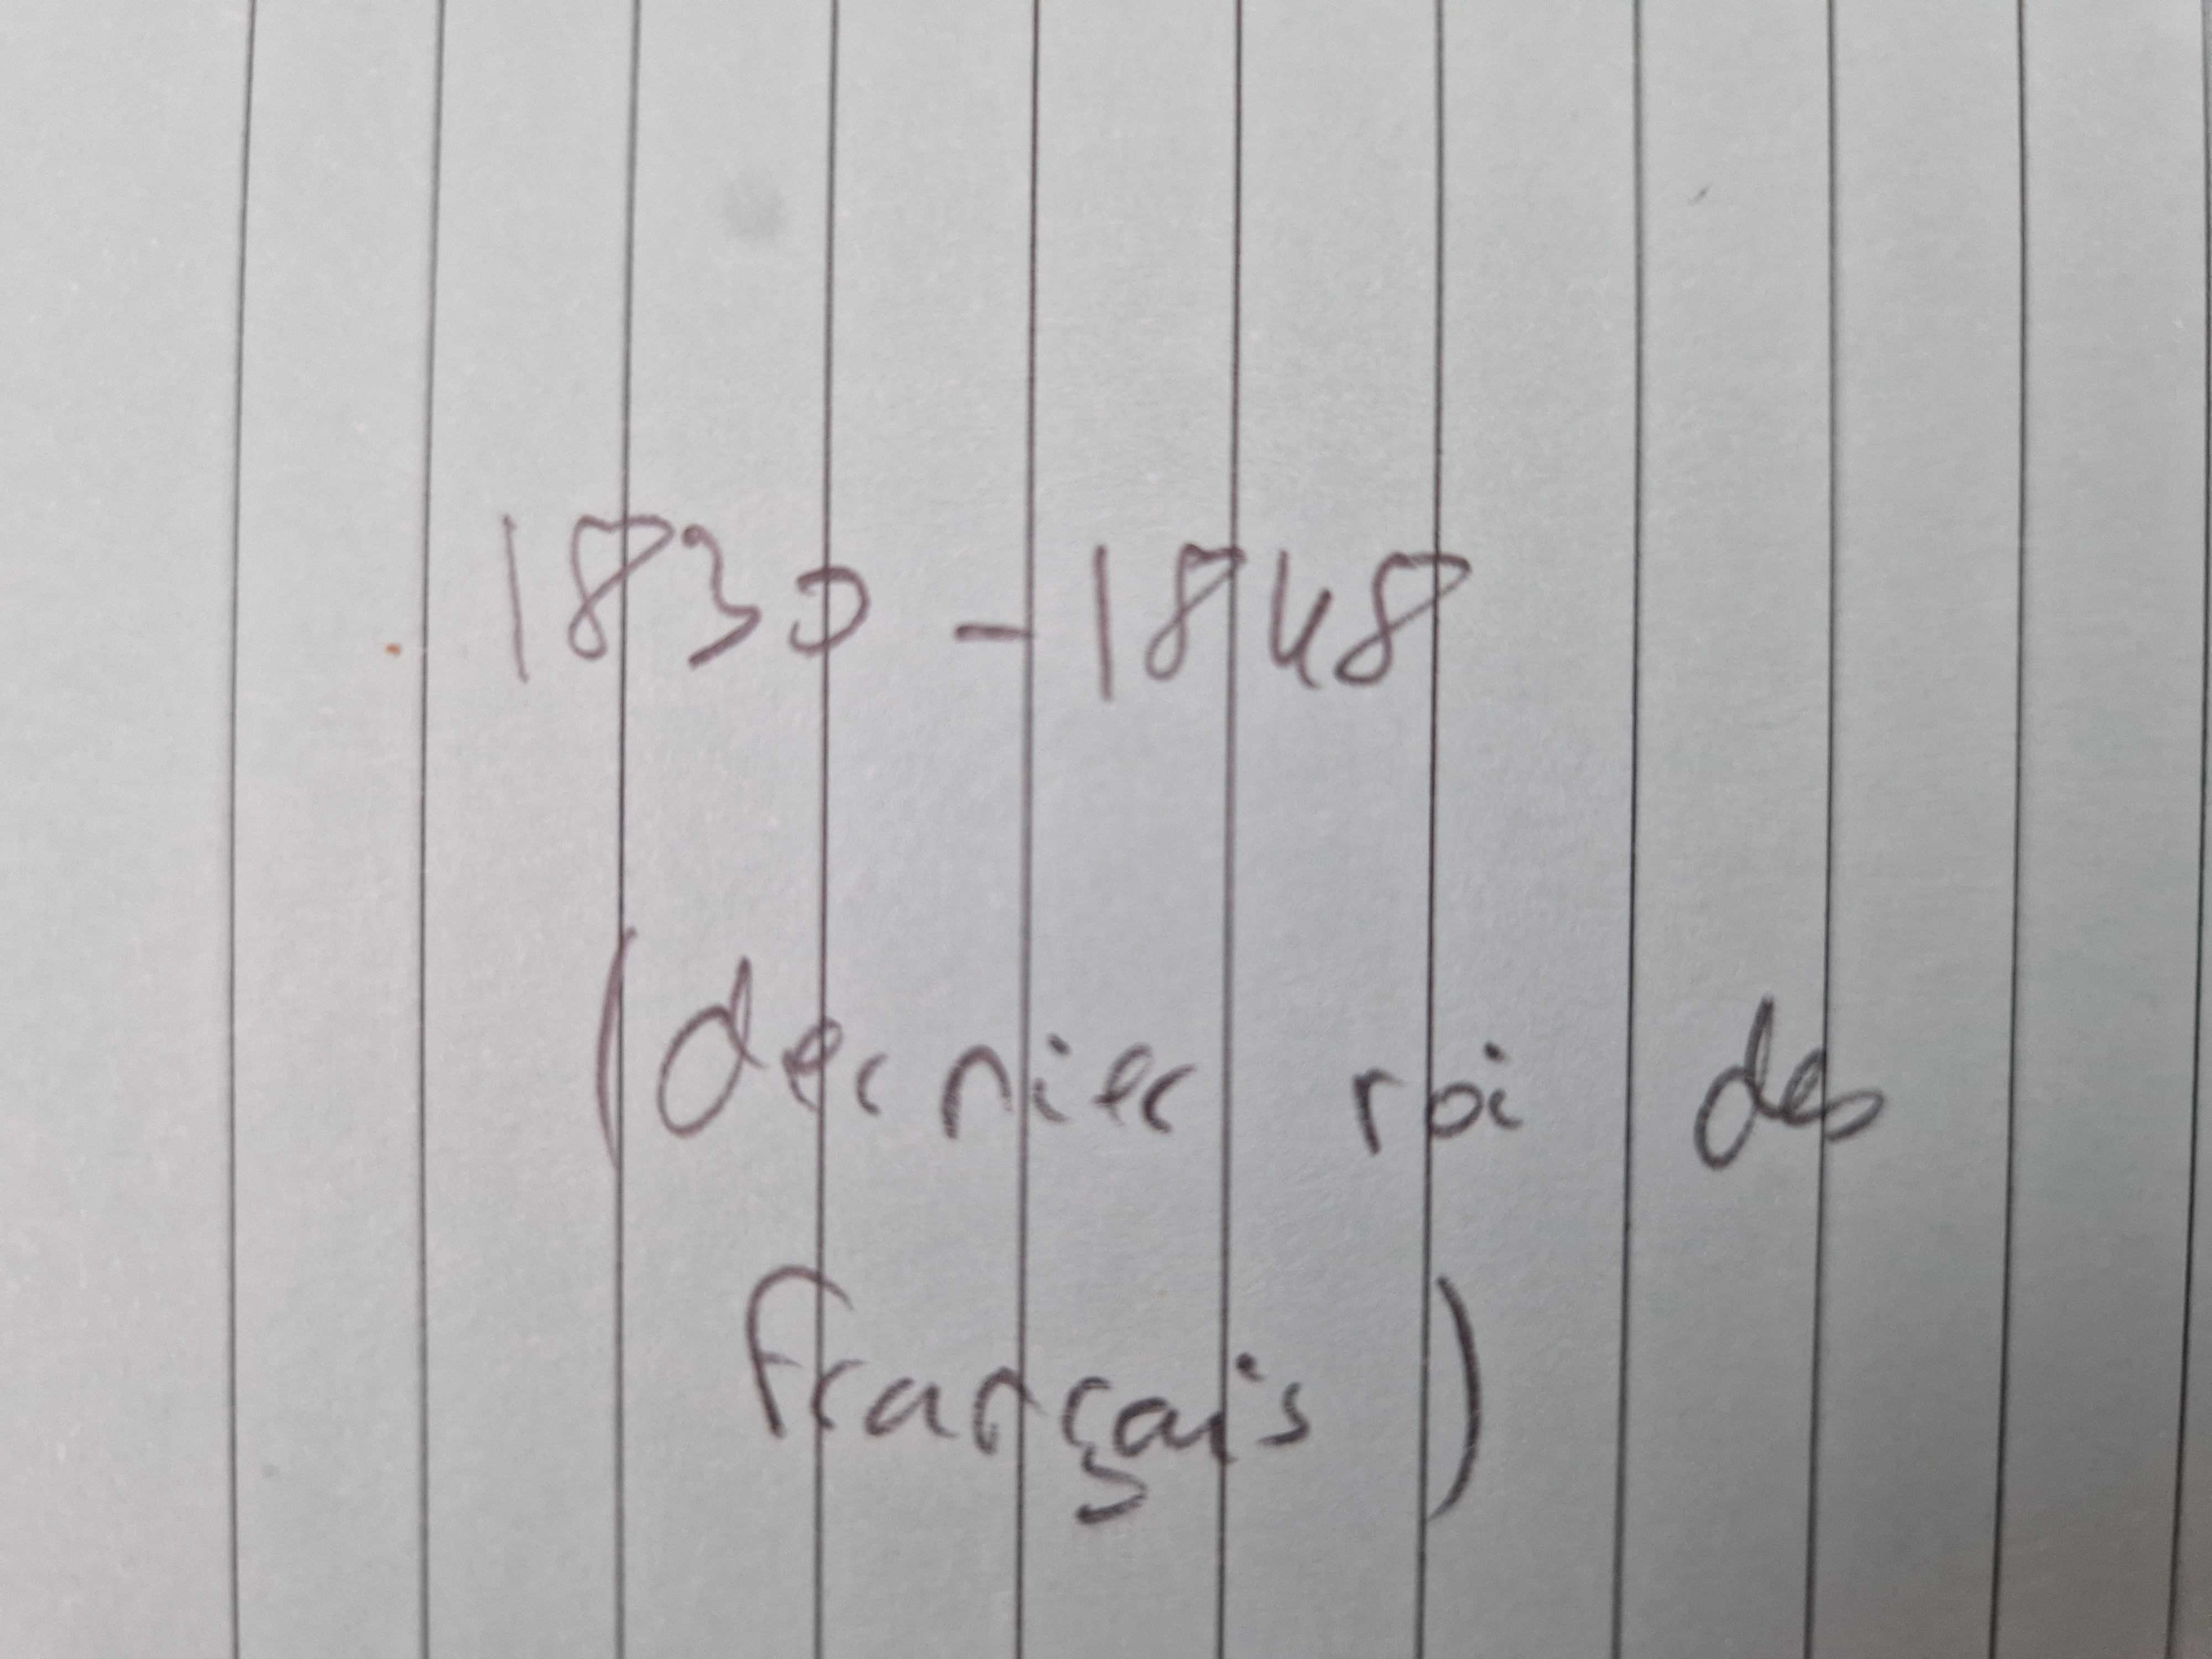 1830 - 1848
(dernier roi des
français)